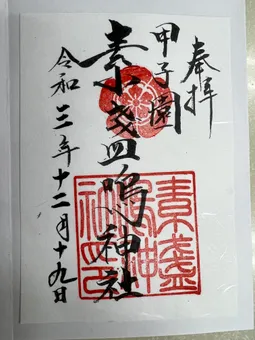 奉拝
甲子園
素盞嗚神社
令和三年十二月十九日